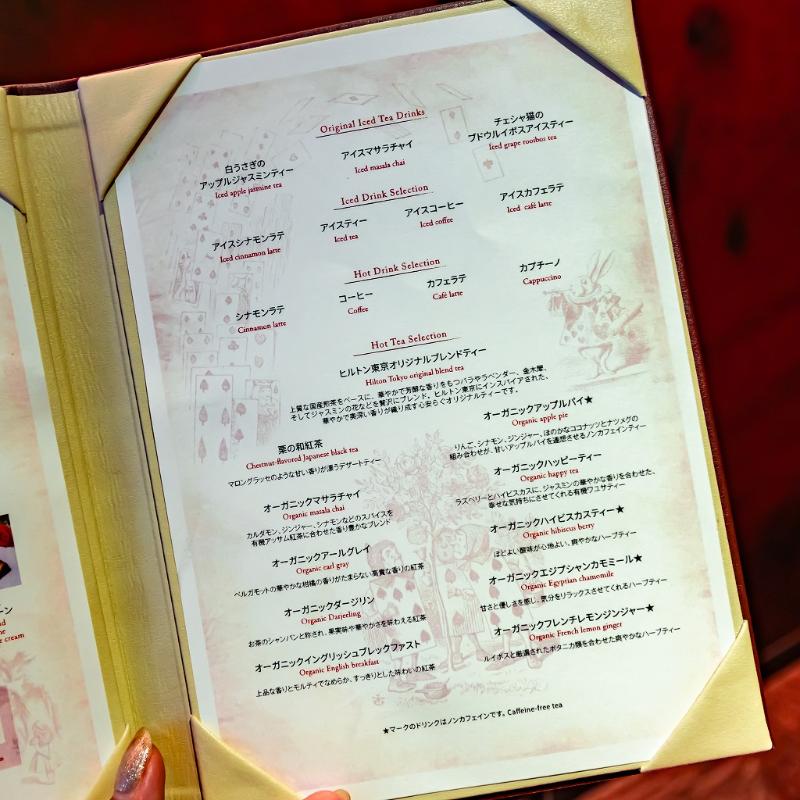 Original Iced Tea Drinks
白うさぎの
アップルジャスミンティー
Iced apple jasmine tea
アイスマサラチャイ
Iced masala chai
チェシャ猫の
ブドウルイボスアイスティー
Iced grape rooibos tea
Iced Drink Selection
アイスシナモンラテ
Iced cinnamon latte
アイスティー
Iced tea
アイスコーヒー
Iced coffee
アイスカフェラテ
Iced café latte
Hot Drink Selection
シナモンラテ
Cinnamon latte
コーヒー
Coffee
カフェラテ
Café latte
カプチーノ
Cappuccino
Hot Tea Selection
ヒルトン東京オリジナルブレンドティー
Hilton Tokyo original blend tea
上質な国産煎茶をベースに、華やかで芳醇な香りをもつバラやラベンダー、金木犀、
そしてジャスミンの花などを贅沢にブレンド。ヒルトン東京にインスパイアされた、
華やかで奥深い香りが織り成す心安らぐオリジナルティーです。
栗の和紅茶
Chestnut-flavored Japanese black tea
マロングラッセのような甘い香りが漂うデザートティー
オーガニックマサラチャイ
Organic masala chai
カルダモン、ジンジャー、シナモンなどのスパイスを
有機アッサム紅茶に合わせた香り豊かなブレンド
オーガニックアールグレイ
Organic earl gray
ベルガモットの華やかな柑橘の香りがたまらない高貴な香りの紅茶
オーガニックダージリン
Organic Darjeeling
お茶のシャンパンと称され、果実味や華やかさを味わえる紅茶
オーガニックイングリッシュブレックファスト
Organic English breakfast
上品な香りとモルティでなめらか、すっきりとした味わいの紅茶
オーガニックアップルパイ★
Organic apple pie
りんご、シナモン、ジンジャー、ほのかなココナッツとナツメグの
組み合わせが、甘いアップルパイを連想させるノンカフェインティー
オーガニックハッピーティー
Organic happy tea
ラズベリーとハイビスカスに、ジャスミンの華やかな香りを合わせた、
幸せな気持ちにさせてくれる有機ワユサティー
オーガニックハイビスカスティー★
Organic hibiscus berry
ほどよい酸味が心地よい、爽やかなハーブティー
オーガニックエジプシャンカモミール★
Organic Egyptian chamomile
甘さと優しさを感じ、気分をリラックスさせてくれるハーブティー
オーガニックフレンチレモンジンジャー★
Organic French lemon ginger
ルイボスと厳選されたボタニカ類を合わせた爽やかなハーブティー
★マークのドリンクはノンカフェインです。Caffeine-free tea
ーン
e cream